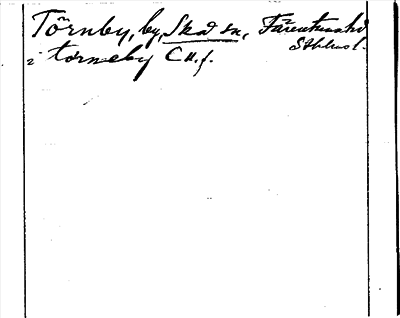 Törnby, by, Skå sn, Färentuna hd
Sthlms l.
i torneby C u. f.